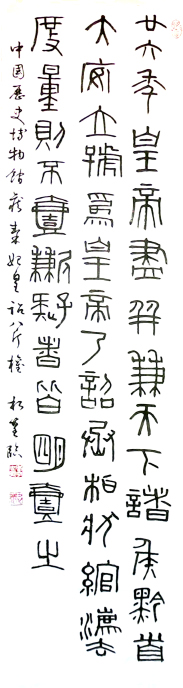 廿六年皇帝盡并兼天下諸侯黔首
大安立號為皇帝乃詔丞相狀綰灋
度量則不壹歉疑者皆明壹之
中国歷史博物館藏秦始皇詔八斤權 臨